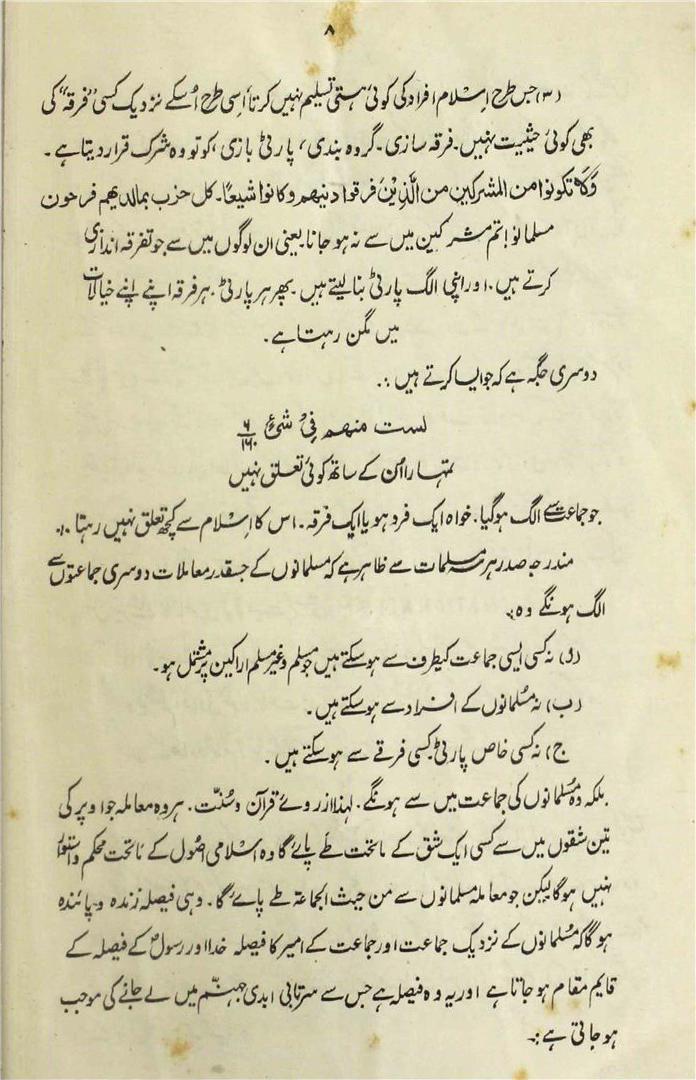 ۸
(۳) جس طرح اِسلام افراد کی کوئی ہستی تسلیم نہیں کرتا۔ اِسی طرح اُسکے نزدیک کسی "فرقہ" کی
بھی کوئی حیثیت نہیں۔ فرقہ سازی۔ گروہ بندی، پارٹی بازی، کو تو وہ شرک قرار دیتا ہے۔
وَلَا تکونوا من المشرکین من الَّذِیْنَ فرقوا دینهم وکانوا شیعًا۔ کل حزب بمالدیهم فرحون
مسلمانو! تم مشرکین میں سے نہ ہو جانا یعنی ان لوگوں میں سے جو تفرقہ اندازی
کرتے ہیں۔ اور اپنی الگ پارٹی بنا لیتے ہیں۔ پھر ہر پارٹی۔ ہر فرقہ اپنے اپنے خیالات
میں مگن رہتا ہے۔
دوسری جگہ ہے کہ جو ایسا کرتے ہیں :۔
لست منهم فِیْ شئ ۶/۱۶۰
تمہارا اُن کے ساتھ کوئی تعلق نہیں
جو جماعت سے الگ ہوگیا۔ خواہ ایک فرد ہو یا ایک فرقہ۔ اس کا اِسلام سے کچھ تعلق نہیں رہتا۔
مندرجہ صدر ہر سہ مسلمات سے ظاہر ہے کہ مسلمانوں کے جسقدر معاملات دوسری جماعتوں سے
الگ ہونگے وہ :۔
(ا) نہ کسی ایسی جماعت کیطرف سے ہوسکتے ہیں جو مسلم و غیر مسلم اراکین پر مشتمل ہو۔
(ب) نہ مُسلمانوں کے افراد سے ہوسکتے ہیں۔
(ج) نہ کسی خاص پارٹی کسی فرقے سے ہو سکتے ہیں۔
بلکہ وہ مُسلمانوں کی جماعت میں سے ہونگے۔ لہذا ازروئے قرآن و سُنّت۔ ہر وہ معاملہ جو اوپر کی
تین شقوں میں سے کسی ایک شق کے ماتحت طے پائے گا وہ اسلامی اصُول کے ماتحت محکم و استوار
نہیں ہوگا لیکن جو معاملہ مسلمانوں سے من حیث الجماعۃ طے پائے گا۔ وہی فیصلہ زندہ و پائندہ
ہوگا کہ مُسلمانوں کے نزدیک جماعت اور جماعت کے امیر کا فیصلہ خدا اور رسولؐ کے فیصلہ کے
قایم مقام ہو جاتا ہے اور یہ وہ فیصلہ ہے جس سے سرتابی ابدی جہنّم میں لے جانے کی موجب
ہو جاتی ہے :۔